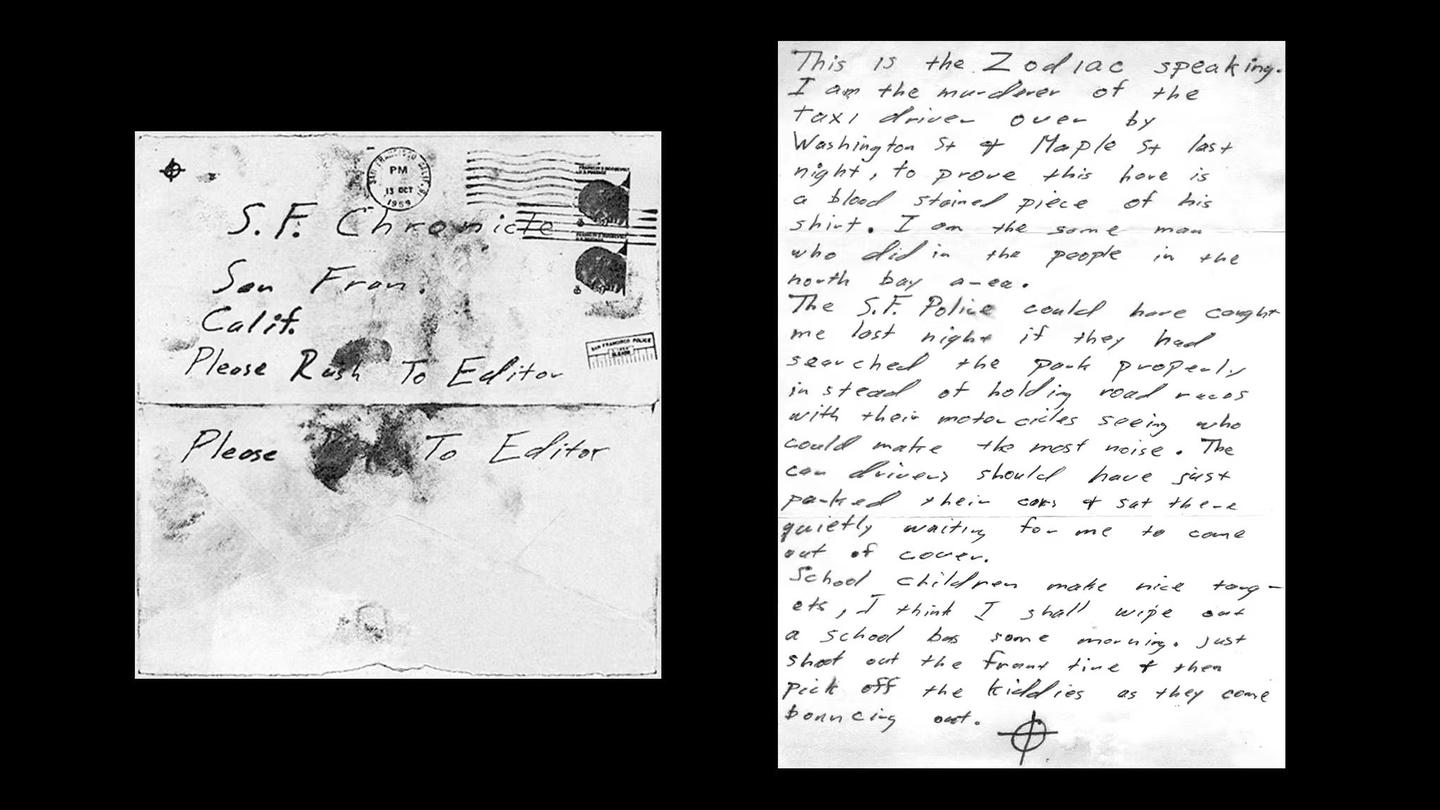 SAN FRANCISCO, CALIF.
PM
13 OCT
1969
FRANKLIN D. ROOSEVELT
S.F. Chronicle
San Fran.
Calif.
Please Rush To Editor
SAN FRANCISCO POLICE
Please To Editor
This is the Zodiac speaking.
I am the murderer of the
taxi driver over by
Washington St & Maple St last
night, to prove this here is
a blood stained piece of his
shirt. I am the same man
who did in the people in the
north bay area.
The S.F. Police could have caught
me last night if they had
searched the park properly
in stead of holding road races
with their motorcicles seeing who
could make the most noise. The
car drivers should have just
parked their cars & sat there
quietly waiting for me to come
out of cover.
School children make nice targ-
ets, I think I shall wipe out
a school bus some morning. Just
shoot out the front tire & then
pick off the kiddies as they come
bouncing out.